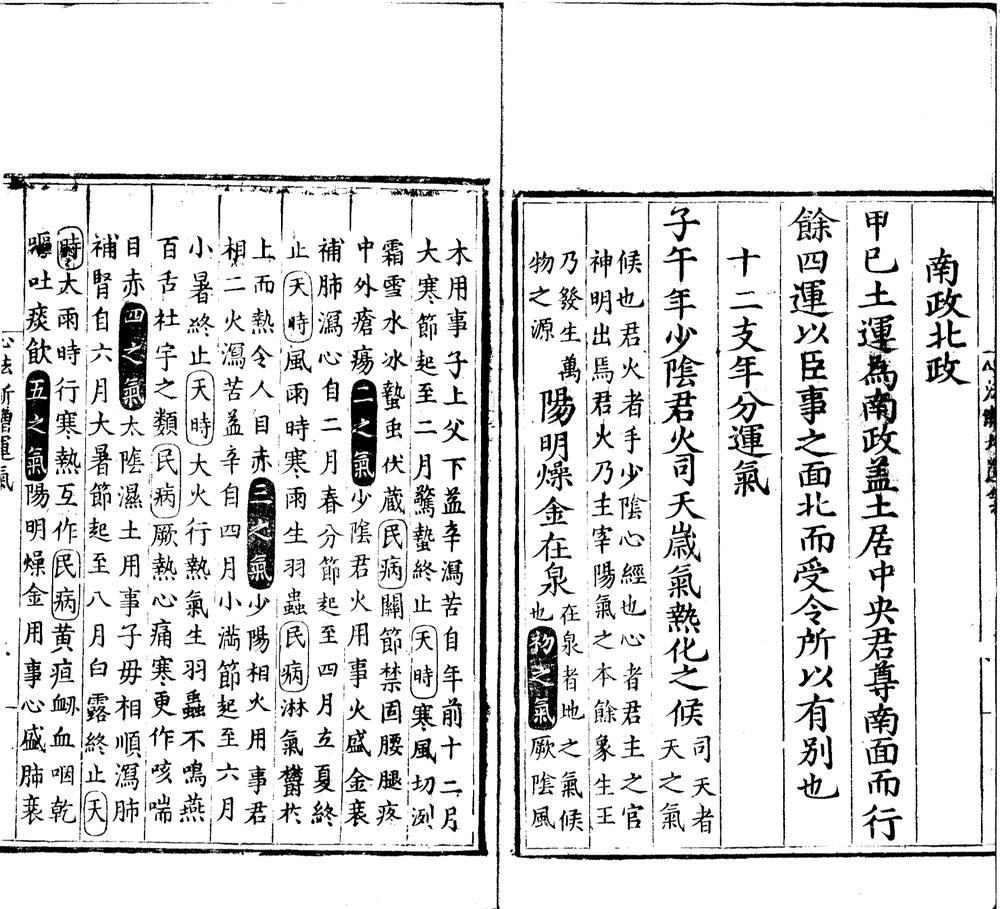 南政北政
甲巳土運為南政盖土居中央君尊南面而行
餘四運以臣事之面北而受令所以有别也
十二支年分運氣
子午年少陰君火司天歲氣熱化之候司天者天之氣
候也君火者手少陰心經也心者君主之官
神明出焉君火乃主宰陽氣之本餘象生王
乃發生萬物之源陽明燥金在泉在泉者地之氣候也初之氣厥陰風
木用事子上父下益辛瀉苦自年前十二月
大寒節起至二月驚蟄終止天時寒風切冽
霜雪水冰蟄虫伏蔵民病關節禁固腰腿疼
中外瘡瘍二之氣少陰君火用事火盛金衰
補肺瀉心自二月春分節起至四月立夏終
止天時風雨時寒雨生羽蟲民病淋氣欝扵
上而熱令人目赤三之氣少陽相火用事君
相二火瀉苦益辛自四月小滿節起至六月
小暑終止天時大火行熱氣生羽蟲不鳴燕
百舌社宇之類民病厥熱心痛寒更作咳喘
目赤四之氣太陰濕土用事子毋相順瀉肺
補腎自六月大暑節起至八月白露終止天
時大雨時行寒熱互作民病黄疸衂血咽乾
嘔吐痰飲五之氣陽明燥金用事心盛肺衰
心法新增運氣